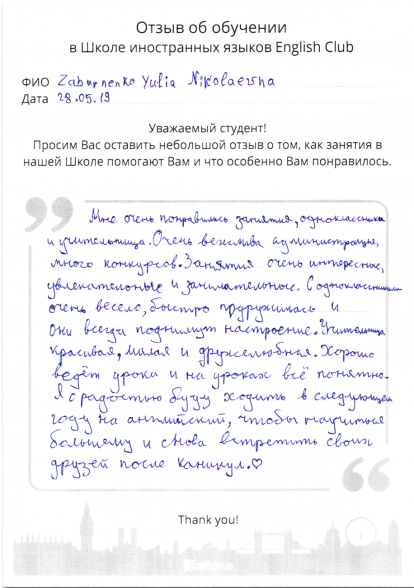 Отзыв об обучении
в Школе иностранных языков English Club
ФИО Zaburnenko Yulia Nikolaevna
Дата 28.05.19
Уважаемый студент!
Просим Вас оставить небольшой отзыв о том, как занятия в
нашей Школе помогают Вам и что особенно Вам понравилось.
Мне очень понравились занятия, одноклассники
и учительница. Очень вежлива администрация,
много конкурсов. Занятия очень интересные,
увлекательные и занимательные. С одноклассниками
очень весело, быстро подружились и
они всегда поднимут настроение. Учительница
красивая, милая и дружелюбная. Хорошо
ведёт уроки и на уроках всё понятно.
Я с радостью буду ходить в следующем
году на английский, чтобы научиться
большему и снова встретить своих
друзей после каникул.♡
Thank you!